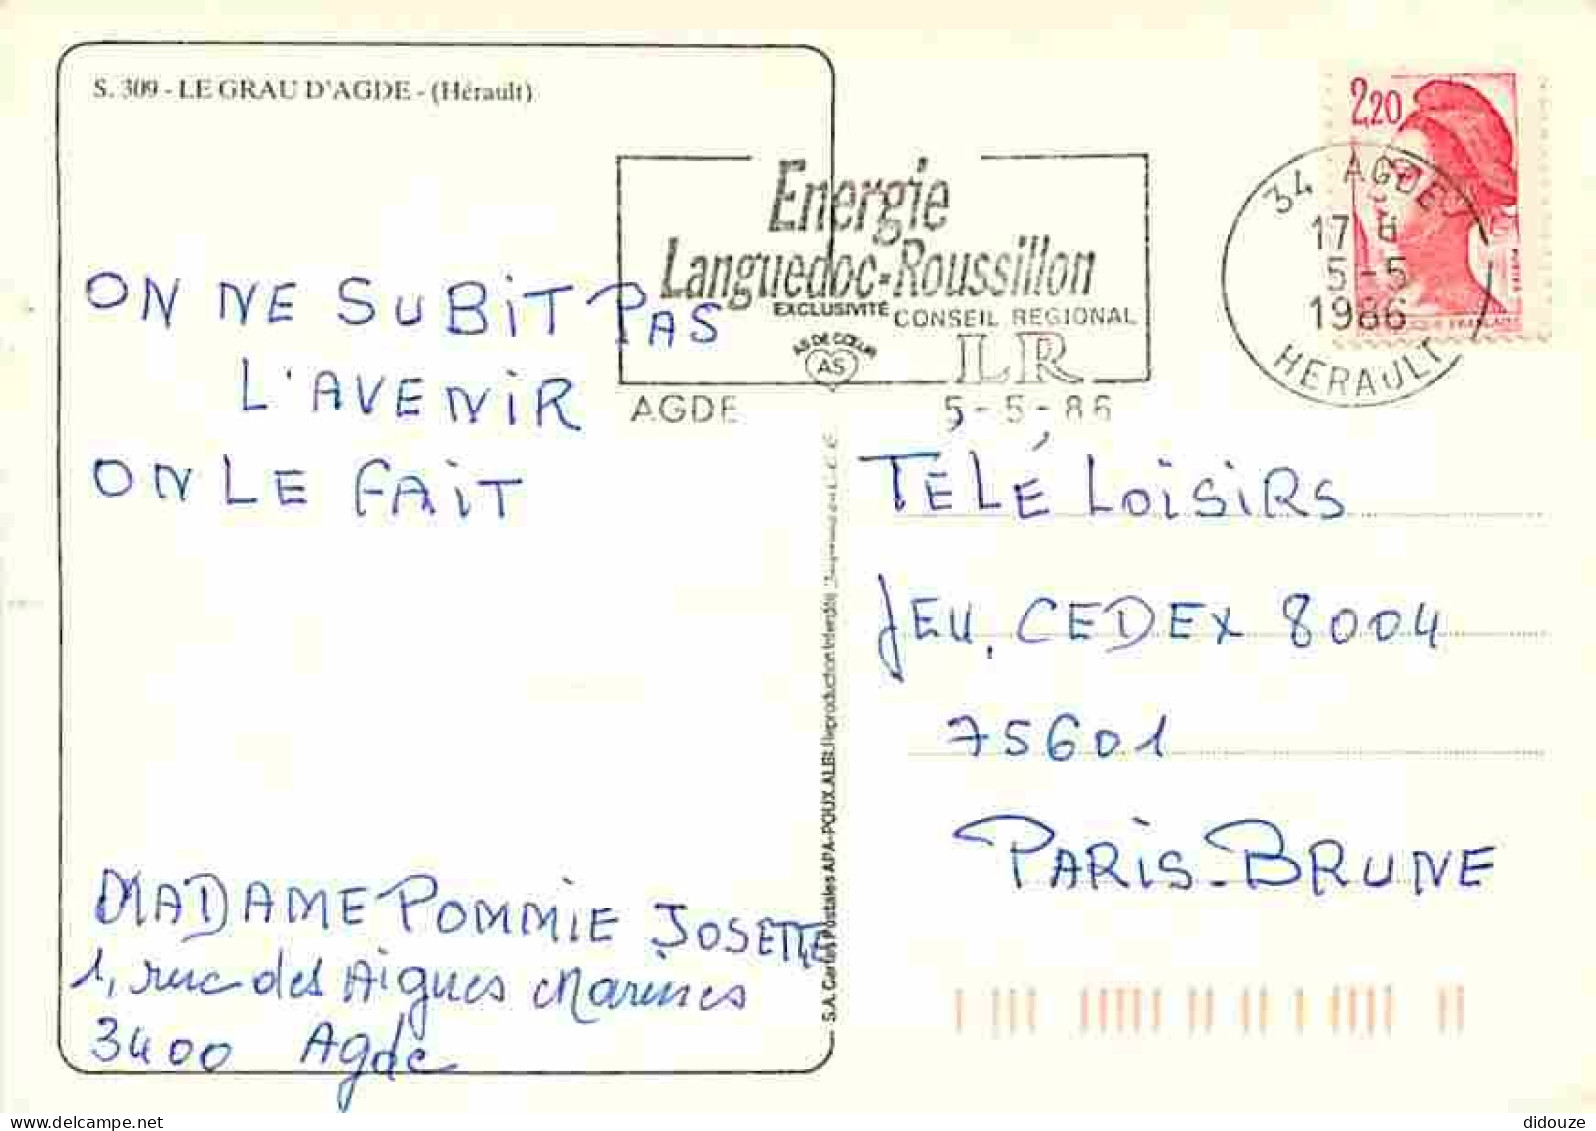 S. 309 - LE GRAU D'AGDE - (Hérault)
2,20
Energie
Languedoc-Roussillon
EXCLUSIVITÉ CONSEIL REGIONAL
AS DE CŒUR
AS
LR
AGDE 5-5-86
34 AGDE
17 H
5-5
1986
HERAULT
ON NE SUBIT PAS
L'AVENIR
ON LE FAIT
TÉLÉ LOISIRS
JEU, CEDEX 8004
75601
PARIS-BRUNE
MADAME POMMIE JOSETTE
1, rue des Aigues Marines
3400 Agde
S.A. Cartes Postales APA-POUX ALBI Reproduction interdite
delcampe.net
didouze